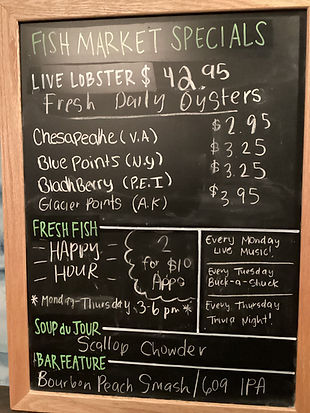 FISH MARKET SPECIALS
LIVE LOBSTER $ 42.95
Fresh Daily Oysters
Chesapeake (V.A) $2.95
Blue Points (N.y) $3.25
BlackBerry (P.E.I) $3.25
Glacier Points (A.K) $3.95
FRESH FISH
HAPPY
HOUR
2
for $10
Apps
*Monday-Thursday 3-6pm*
Every Monday
Live Music!
Every Tuesday
Buck-a-Shuck
Every Thursday
Trivia Night!
SOUP du JOUR
Scallop Chowder
BAR FEATURE
Bourbon Peach Smash/609 IPA